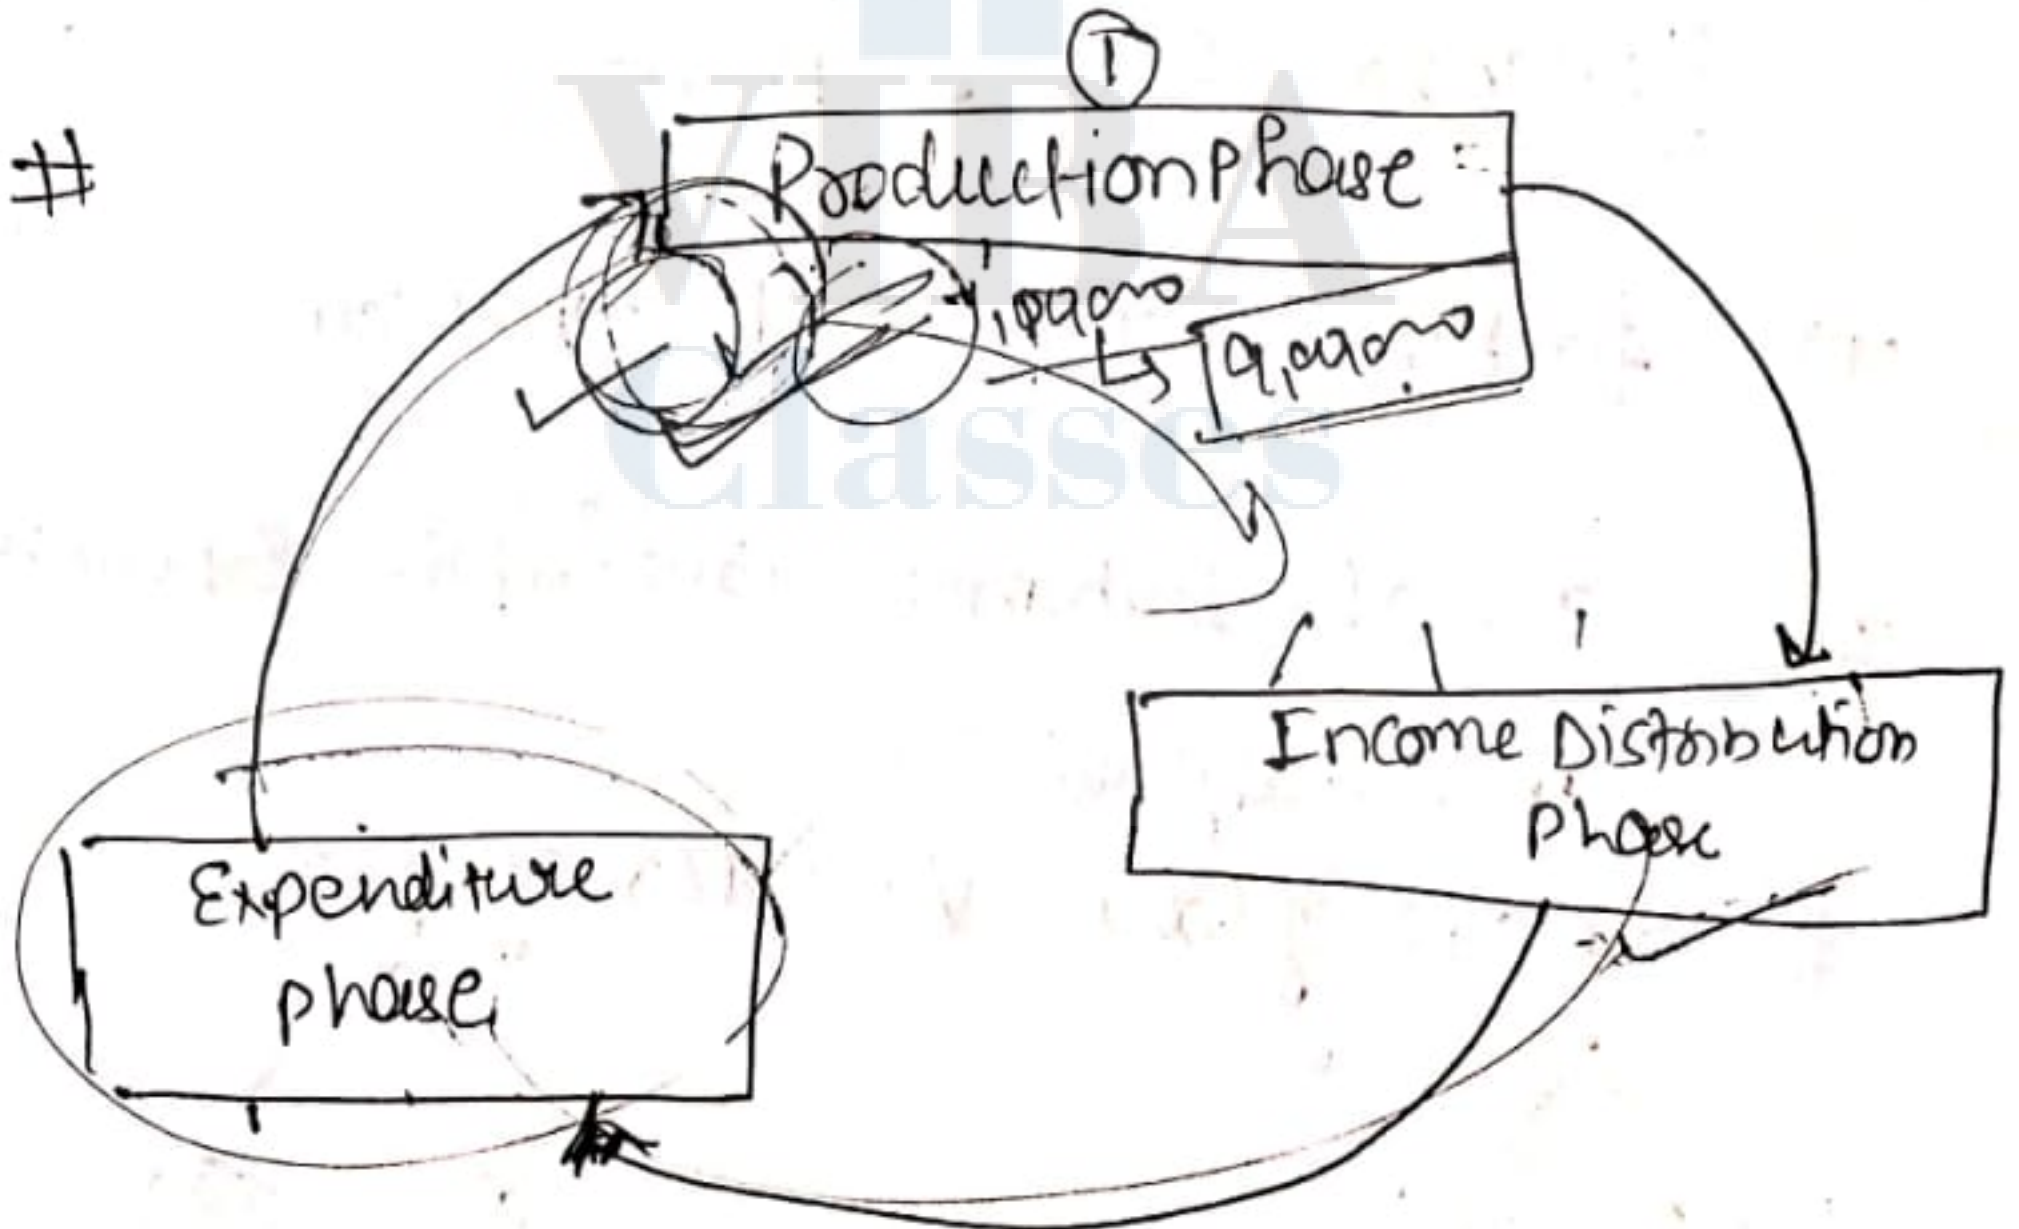 #
1
Production Phase
Income Distribution
Phase
Expenditure
phase
VIBA
Classes